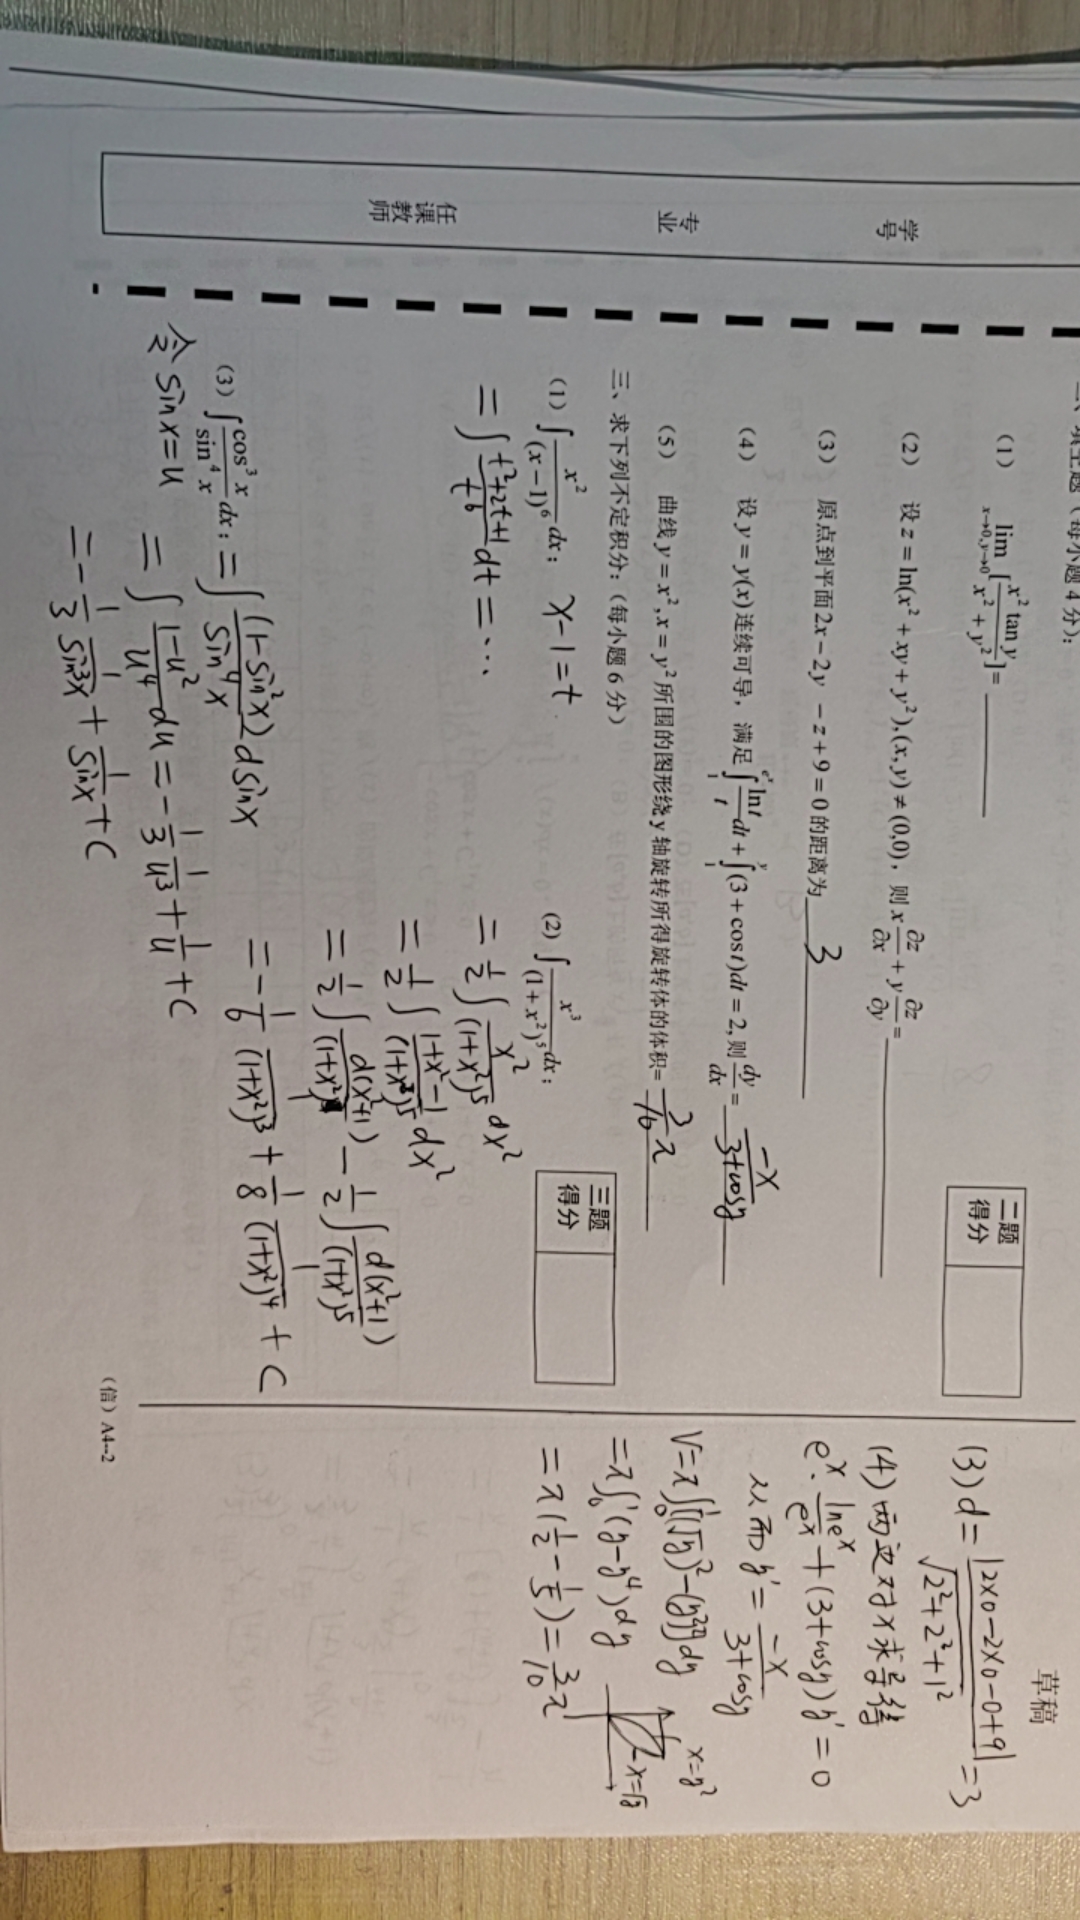 学号
专业
任课教师
二、填空题（每小题 4 分）:
二题得分
（1） lim x→0,y→0 [x² tan y / (x² + y²)] = ______
（2） 设 z = ln(x² + xy + y²), (x, y) ≠ (0,0)，则 x ∂z/∂x + y ∂z/∂y = ______
（3） 原点到平面 2x − 2y − z + 9 = 0 的距离为 3
（4） 设 y = y(x) 连续可导，满足 ∫₁^{eˣ} (ln t / t) dt + ∫₁^y (3 + cos t) dt = 2, 则 dy/dx = −x/(3+cosy)
（5） 曲线 y = x², x = y² 所围的图形绕 y 轴旋转所得旋转体的体积= 3/10 π
三、求下列不定积分:（每小题 6 分）
三题得分
（1） ∫ x²/(x−1)⁶ dx; x−1=t
= ∫ (t²+2t+1)/t⁶ dt = …
(2) ∫ x³/(1+x²)⁵ dx;
= 1/2 ∫ x²/(1+x²)⁵ dx²
= 1/2 ∫ (1+x²−1)/(1+x²)⁵ dx²
= 1/2 ∫ d(x²+1)/(1+x²)⁴ − 1/2 ∫ d(x²+1)/(1+x²)⁵
= −1/6 1/(1+x²)³ + 1/8 1/(1+x²)⁴ + C
（3） ∫ cos³x/sin⁴x dx; = ∫ (1−sin²x)/sin⁴x dsinx
令 sinx=u = ∫ (1−u²)/u⁴ du = −1/3 1/u³ + 1/u + C
= −1/3 1/sin³x + 1/sinx + C
（信）A4--2
草稿
(3) d = |2×0−2×0−0+9| / √(2²+2²+1²) = 3
(4) 两边对x求导得
eˣ · lneˣ/eˣ + (3+cosy)y' = 0
从而 y' = −x/(3+cosy)
V = π∫₀¹[(√y)²−(y²)²]dy
= π∫₀¹(y−y⁴)dy
= π(1/2 − 1/5) = 3/10 π
x=y²
x=√y